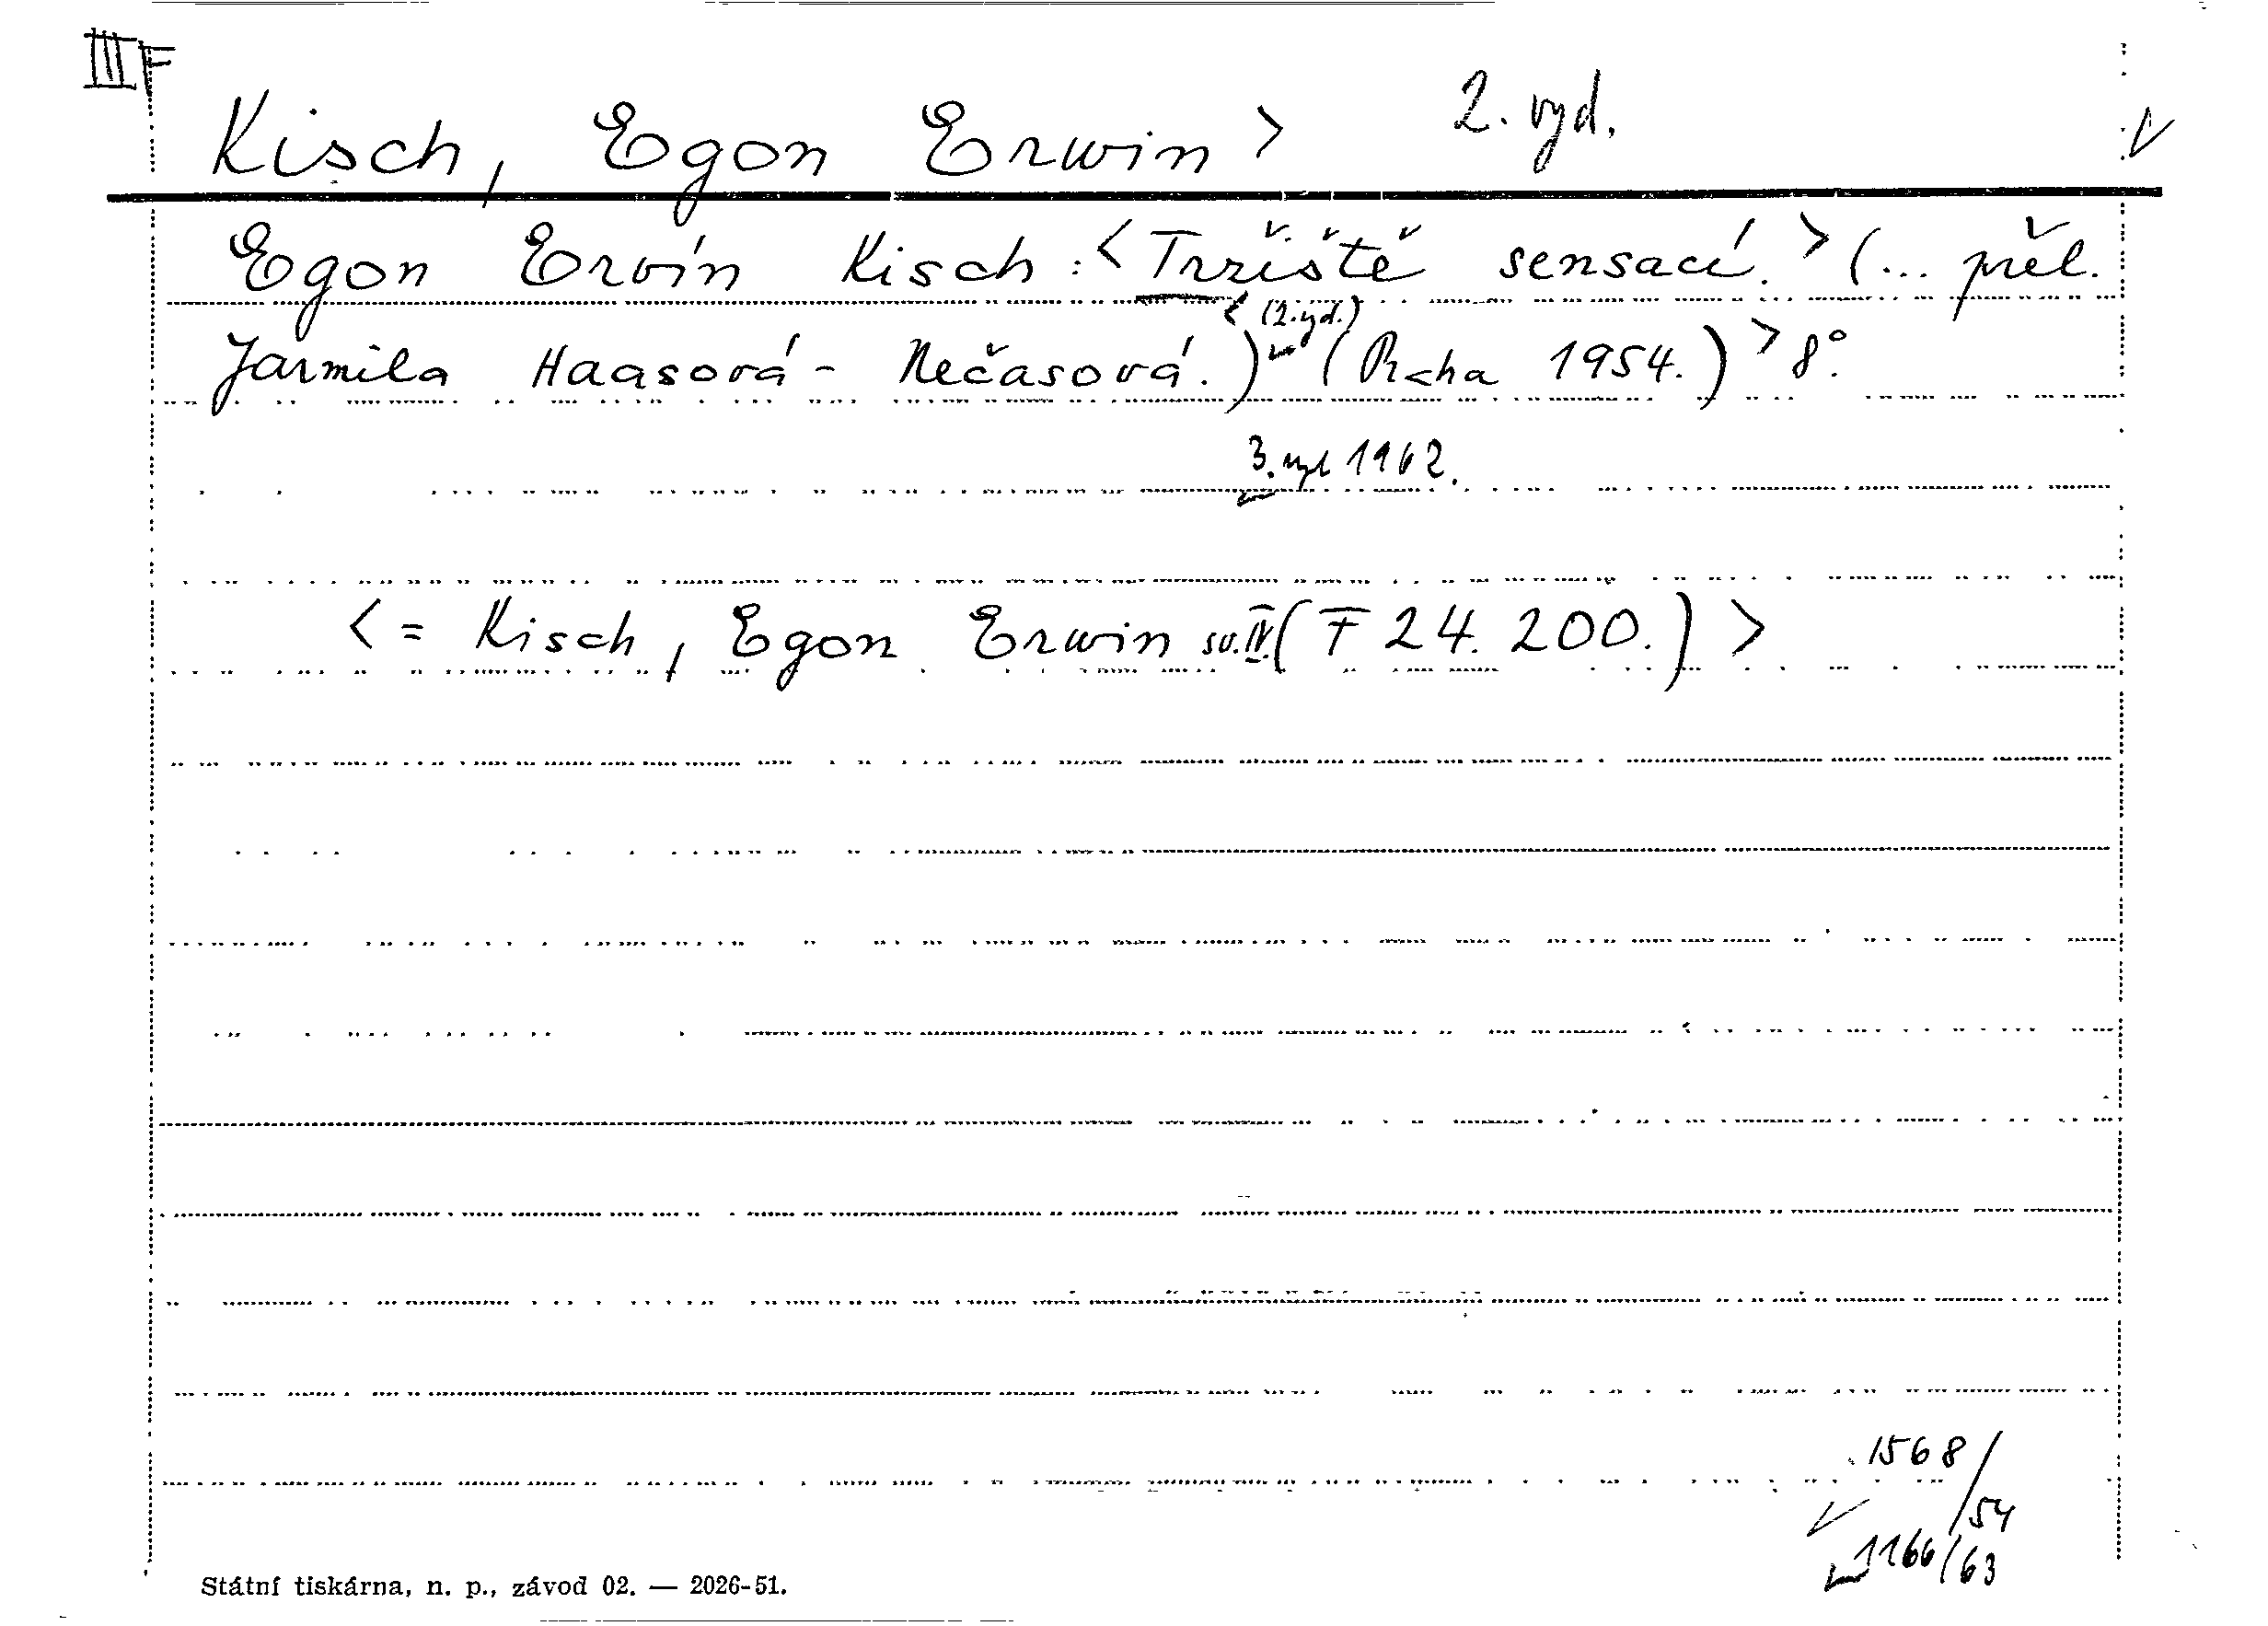 III F
Kisch, Egon Erwin > 2. vyd.
Egon Ervín Kisch: <Tržiště sensací.> (... přel.
(2. vyd.)
Jarmila Haasová - Nečasová.) (Praha 1954.) > 8°.
3. vyd 1962.
< = Kisch, Egon Erwin sv. IV. (F 24. 200.) >
1568/54
1166/63
Státní tiskárna, n. p., závod 02. — 2026-51.